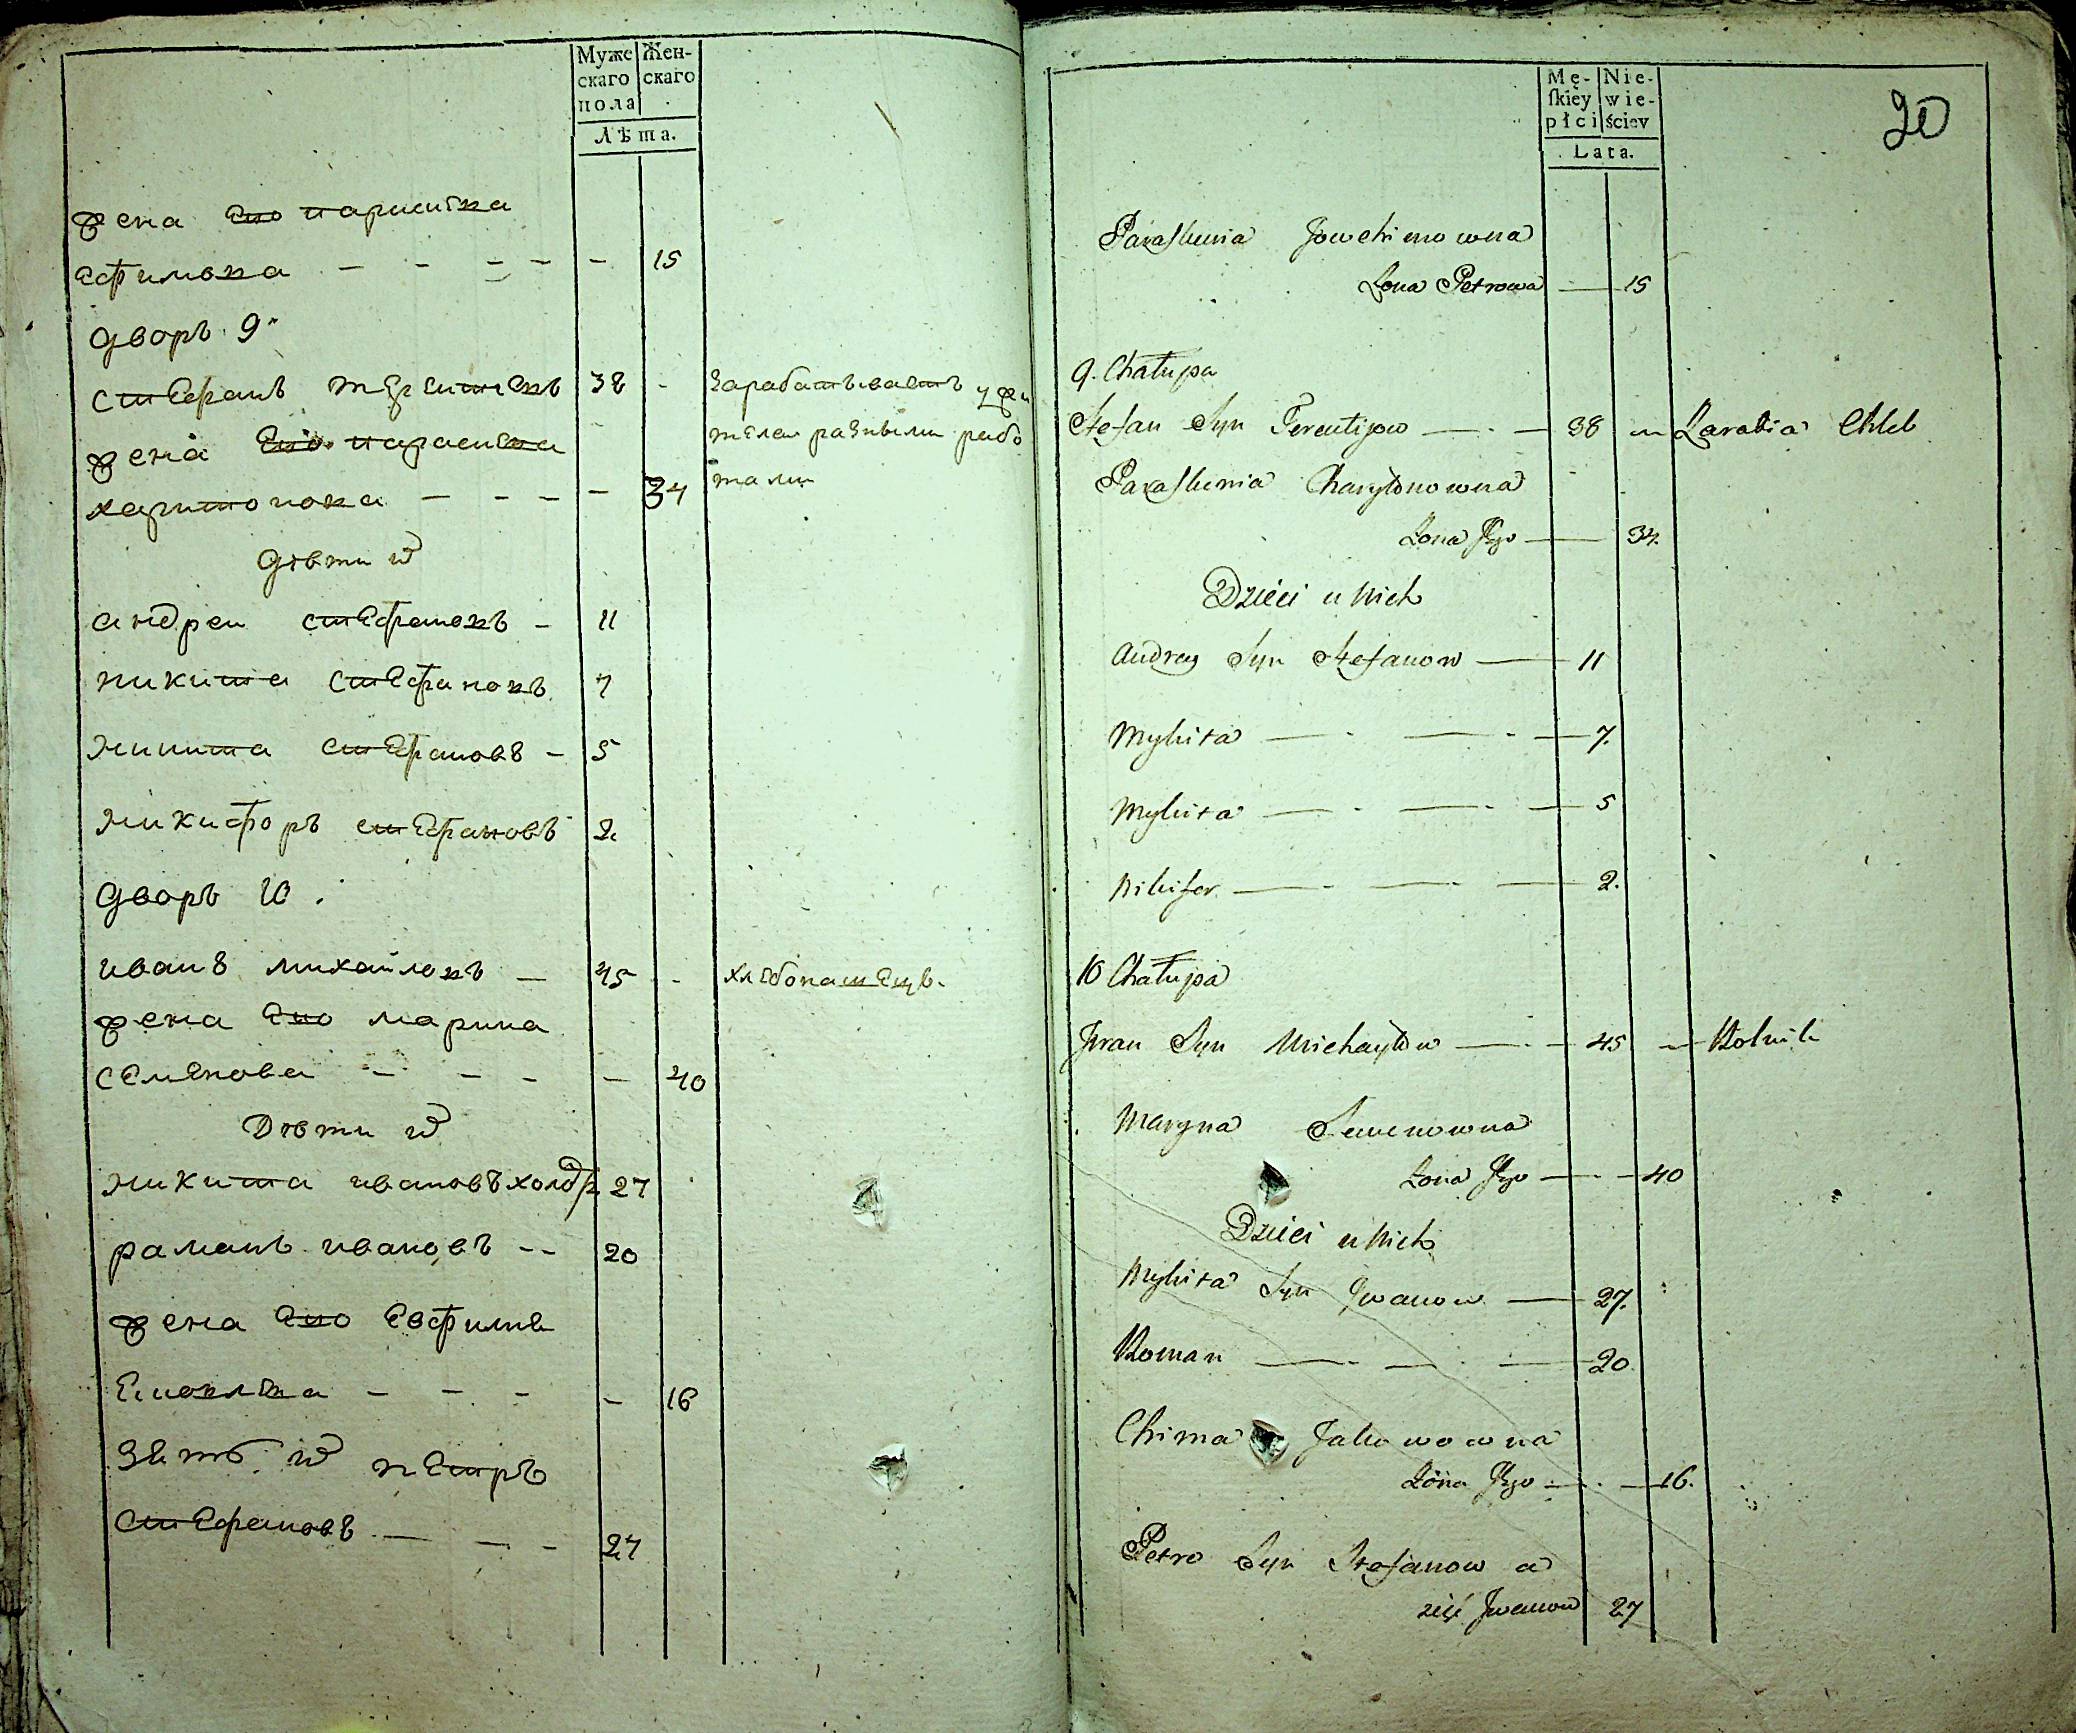 Муже
скаго
пола
Жен-
скаго
Лѣта.
жена ево парасквя
ефимова — — — — — 15
дворъ 9й
стефанъ терентиевъ 38 - зарабатываетъ у жи
жена ево параскевиа телеи разными рабо
харитонова — — — — 34 тами
дѣти их
андреи стефановъ — 11
никита стефановъ 7
микита стефановъ — 5
микифоръ стефановъ 2
дворъ 10.
иванъ михайловъ — 45 - хлѣбопашецъ.
жена ево марина
семенова — — — — 40
Дѣти их
микита ивановъ 27
раманъ ивановъ -- 20
жена ево евфимия
— — — — 16
зять их петръ
стефановъ — — — 27
Mę-
ſkiey
płci
Nie-
wie-
ściey
Lata.
20
Paraskiewia Jowchimowna
Żona Petrowa — 15
9. Chałupa
Stefan Syn Terentijow — 38 Zarabia Chleb
Paraskiewia Charytonowna
Żona Jego — 34.
Dzieci u Nich
Andrey Syn Stefanow — 11
Mykita — 7.
Mykita — 5
Nikifor — 2.
10 Chałupa
Iwan Syn Michayłow — 45 — Rolnik
Maryna Semenowna
Żona Jego — 40
Dzieci u Nich
Mykita Syn Iwanow — 27.
Roman — 20
Chima Jakowowna
Żona Jego — 16.
Petro Syn Stefanow a
zięć Iwanow 27